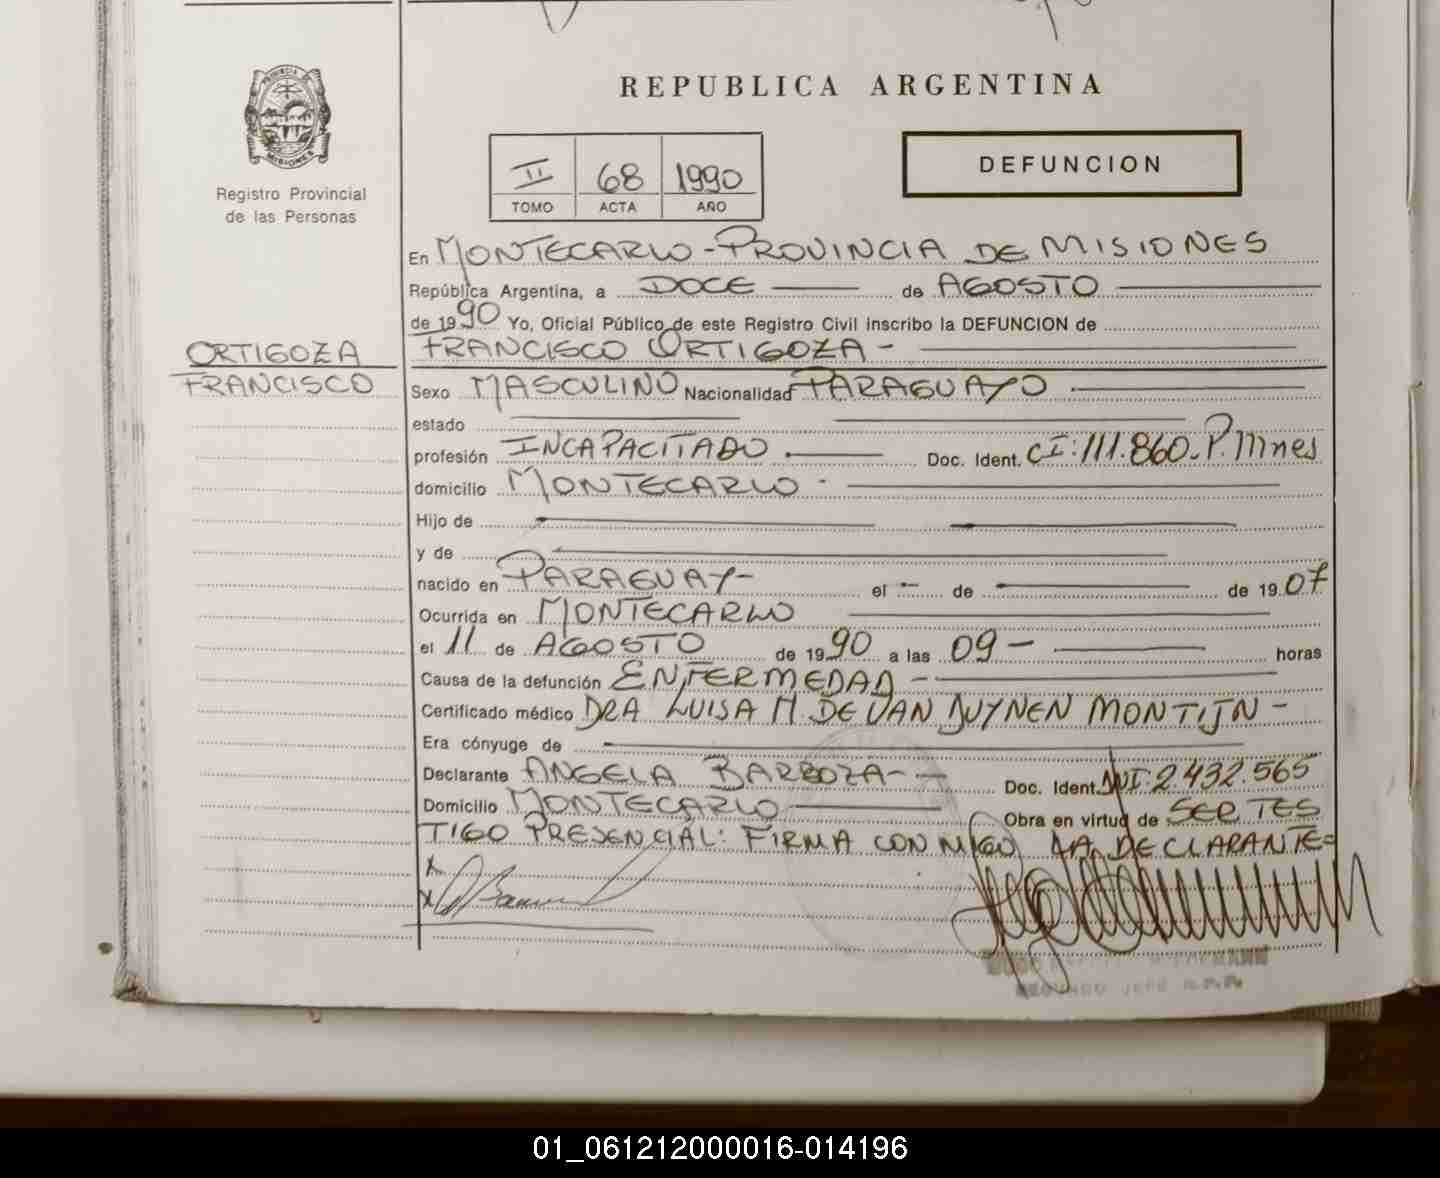 REPUBLICA ARGENTINA
PROVINCIA DE
MISIONES
Registro Provincial
de las Personas
II 68 1990
TOMO ACTA AÑO
DEFUNCION
En MONTECARLO - PROVINCIA DE MISIONES
República Argentina, a DOCE de AGOSTO
de 1990 Yo, Oficial Público de este Registro Civil inscribo la DEFUNCION de
ORTIGOZA
FRANCISCO
FRANCISCO ORTIGOZA -
Sexo MASCULINO Nacionalidad PARAGUAYO
estado
profesión INCAPACITADO Doc. Ident. CI: 111.860. P. Mnes
domicilio MONTECARLO
Hijo de
y de
nacido en PARAGUAY - el de de 1907
Ocurrida en MONTECARLO
el 11 de AGOSTO de 1990 a las 09 - horas
Causa de la defunción ENFERMEDAD -
Certificado médico DRA LUISA M. DE VAN DUYNEN MONTIJN -
Era cónyuge de
Declarante ANGELA BARBOZA - Doc. Ident. DNI: 2.432.565
Domicilio MONTECARLO Obra en virtud de SER TES
TIGO PRESENCIAL: FIRMA CONMIGO LA DECLARANTE=
X
X
SEGUNDO JEFE R.P.P.
01_061212000016-014196